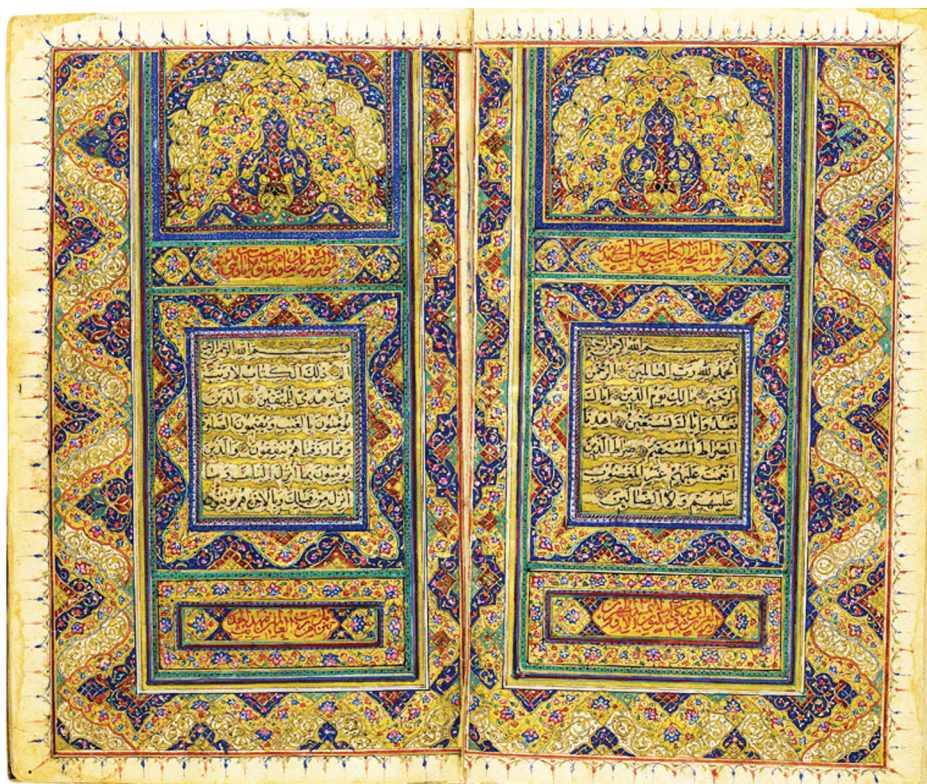 سورة الفاتحة الكتاب سبع
بسم الله الرحمن الرحيم
الحمد لله رب العالمين الرحمن
الرحيم مالك يوم الدين اياك
نعبد واياك نستعين اهدنا
الصراط المستقيم صراط الذين
انعمت عليهم غير المغضوب
عليهم ولا الضالين
المطهرون
سورة البقرة
بسم الله الرحمن الرحيم
الم ذلك الكتاب لا ريب
فيه هدى للمتقين الذين
يؤمنون بالغيب ويقيمون الصلوة
ومما رزقناهم ينفقون والذين
يؤمنون بما انزل اليك وما
انزل من قبلك وبالاخرة هم يوقنون
من رب العالمين